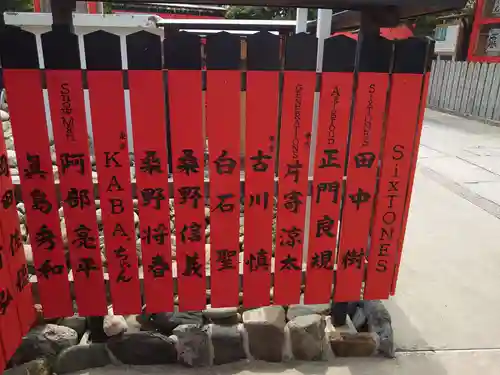 真島秀和
阿部亮平
KABAちゃん
桑野将春
桑野信義
白石聖
古川慎
GENERATIONS 片寄涼太
正門良規
SixTONES 田中樹
SixTONES